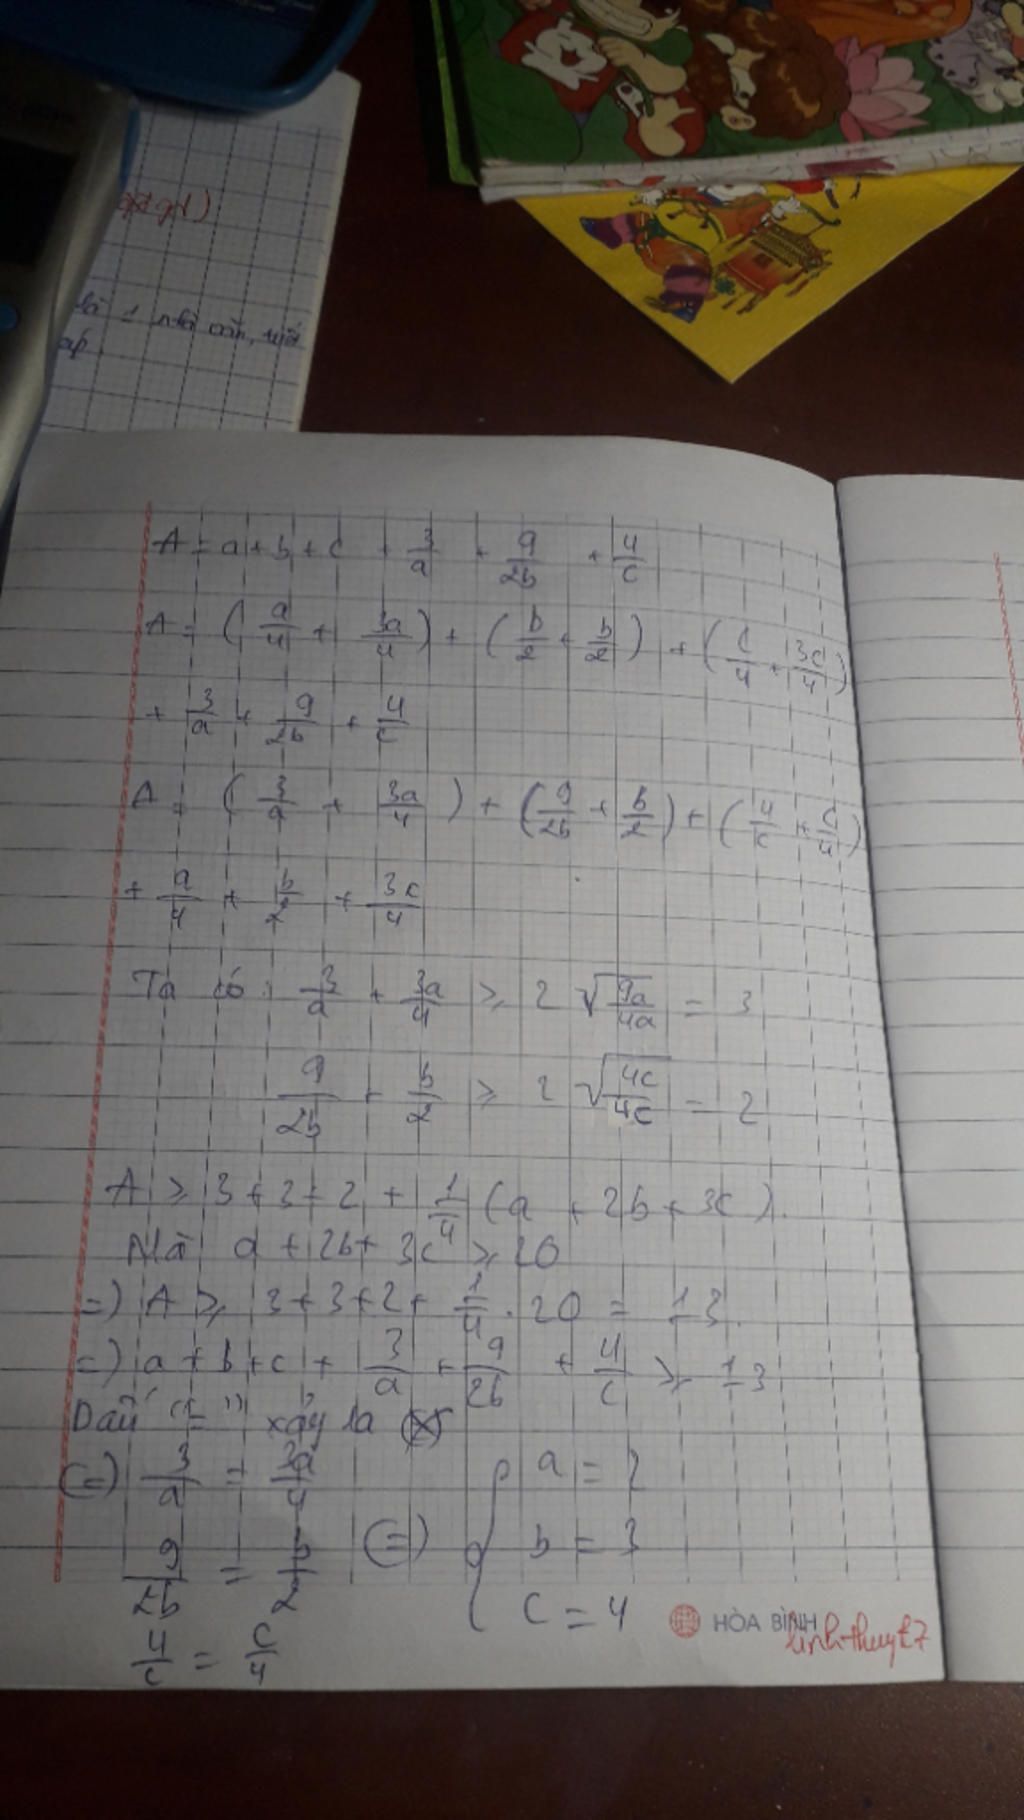 là 1 nhà văn, một
áp
A = a + b + c + 3/a + 9/2b + 4/c
A = (a/4 + 3a/4) + (b/2 + b/2) + (c/4 + 3c/4)
+ 3/a + 9/2b + 4/c
A = (3/a + 3a/4) + (9/2b + b/2) + (4/c + c/4)
+ a/4 + b/2 + 3c/4
Ta có: 3/a + 3a/4 ≥ 2 √(9a/4a) = 3
9/2b + b/2 ≥ 2 √(4c/4c) = 2
A ≥ 3 + 3 + 2 + 1/4 (a + 2b + 3c).
Mà a + 2b + 3c ≥ 20
=) A ≥ 3 + 3 + 2 + 1/4 . 20 = 13.
=) a + b + c + 3/a + 9/2b + 4/c ≥ 13
Dấu "=" xảy ra
(=) 3/a = 3a/4
9/2b = b/2
4/c = c/4
(=) { a = 2
b = 3
c = 4
HÒA BÌNH
linhthuyk7